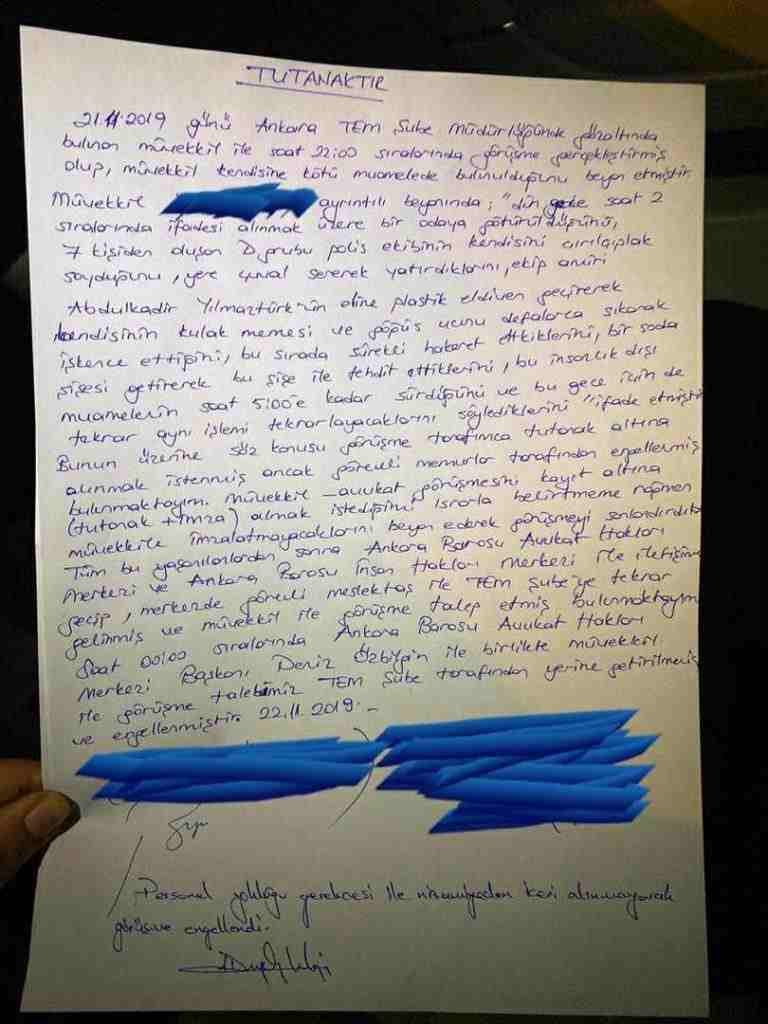 TUTANAKTIR
21.11.2019 günü Ankara TEM Şube Müdürlüğünde gözaltında
bulunan müvekkil ile saat 22:00 sıralarında görüşme gerçekleştirmiş
olup, müvekkil kendisine kötü muamelede bulunulduğunu beyan etmiştir.
Müvekkil ayrıntılı beyanında; "dün gece saat 2
sıralarında ifadesi alınmak üzere bir odaya götürüldüğünü,
7 kişiden oluşan D grubu polis ekibinin kendisini çırılçıplak
soyduğunu, yere çuval sererek yatırdıklarını, ekip amiri
Abdulkadir Yılmaztürk'ün eline plastik eldiven geçirerek
kendisinin kulak memesi ve göğüs ucunu defalarca sıkarak
işkence ettiğini, bu sırada sürekli hakaret ettiklerini, bir soda
şişesi getirerek bu şişe ile tehdit ettiklerini, bu insanlık dışı
muamelenin saat 5:00'e kadar sürdüğünü ve bu gece için de
tekrar aynı işlemi tekrarlayacaklarını söylediklerini" ifade etmiştir
Bunun üzerine söz konusu görüşme tarafımca tutanak altına
alınmak istenmiş ancak görevli memurlar tarafından engellenmiş
bulunmaktayım. Müvekkil-avukat görüşmesini kayıt altına
(tutanak + imza) almak istediğimi ısrarla belirtmeme rağmen
müvekkile imzalatmayacaklarını beyan ederek görüşmeyi sonlandırdılar
Tüm bu yaşanılanlardan sonra Ankara Barosu Avukat Hakları
Merkezi ve Ankara Barosu İnsan Hakları Merkezi ile iletişime
geçip, merkezde görevli meslektaş ile TEM Şube'ye tekrar
gelinmiş ve müvekkil ile görüşme talep etmiş bulunmaktayım
Saat 00:00 sıralarında Ankara Barosu Avukat Hakları
Merkezi Başkanı Deniz Özbilgin ile birlikte müvekkil
ile görüşme talebimiz TEM Şube tarafından yerine getirilmemiş
ve engellenmiştir. 22.11.2019.-
Personel yokluğu gerekçesi ile nizamiyeden içeri alınmayarak
görüşme engellendi.